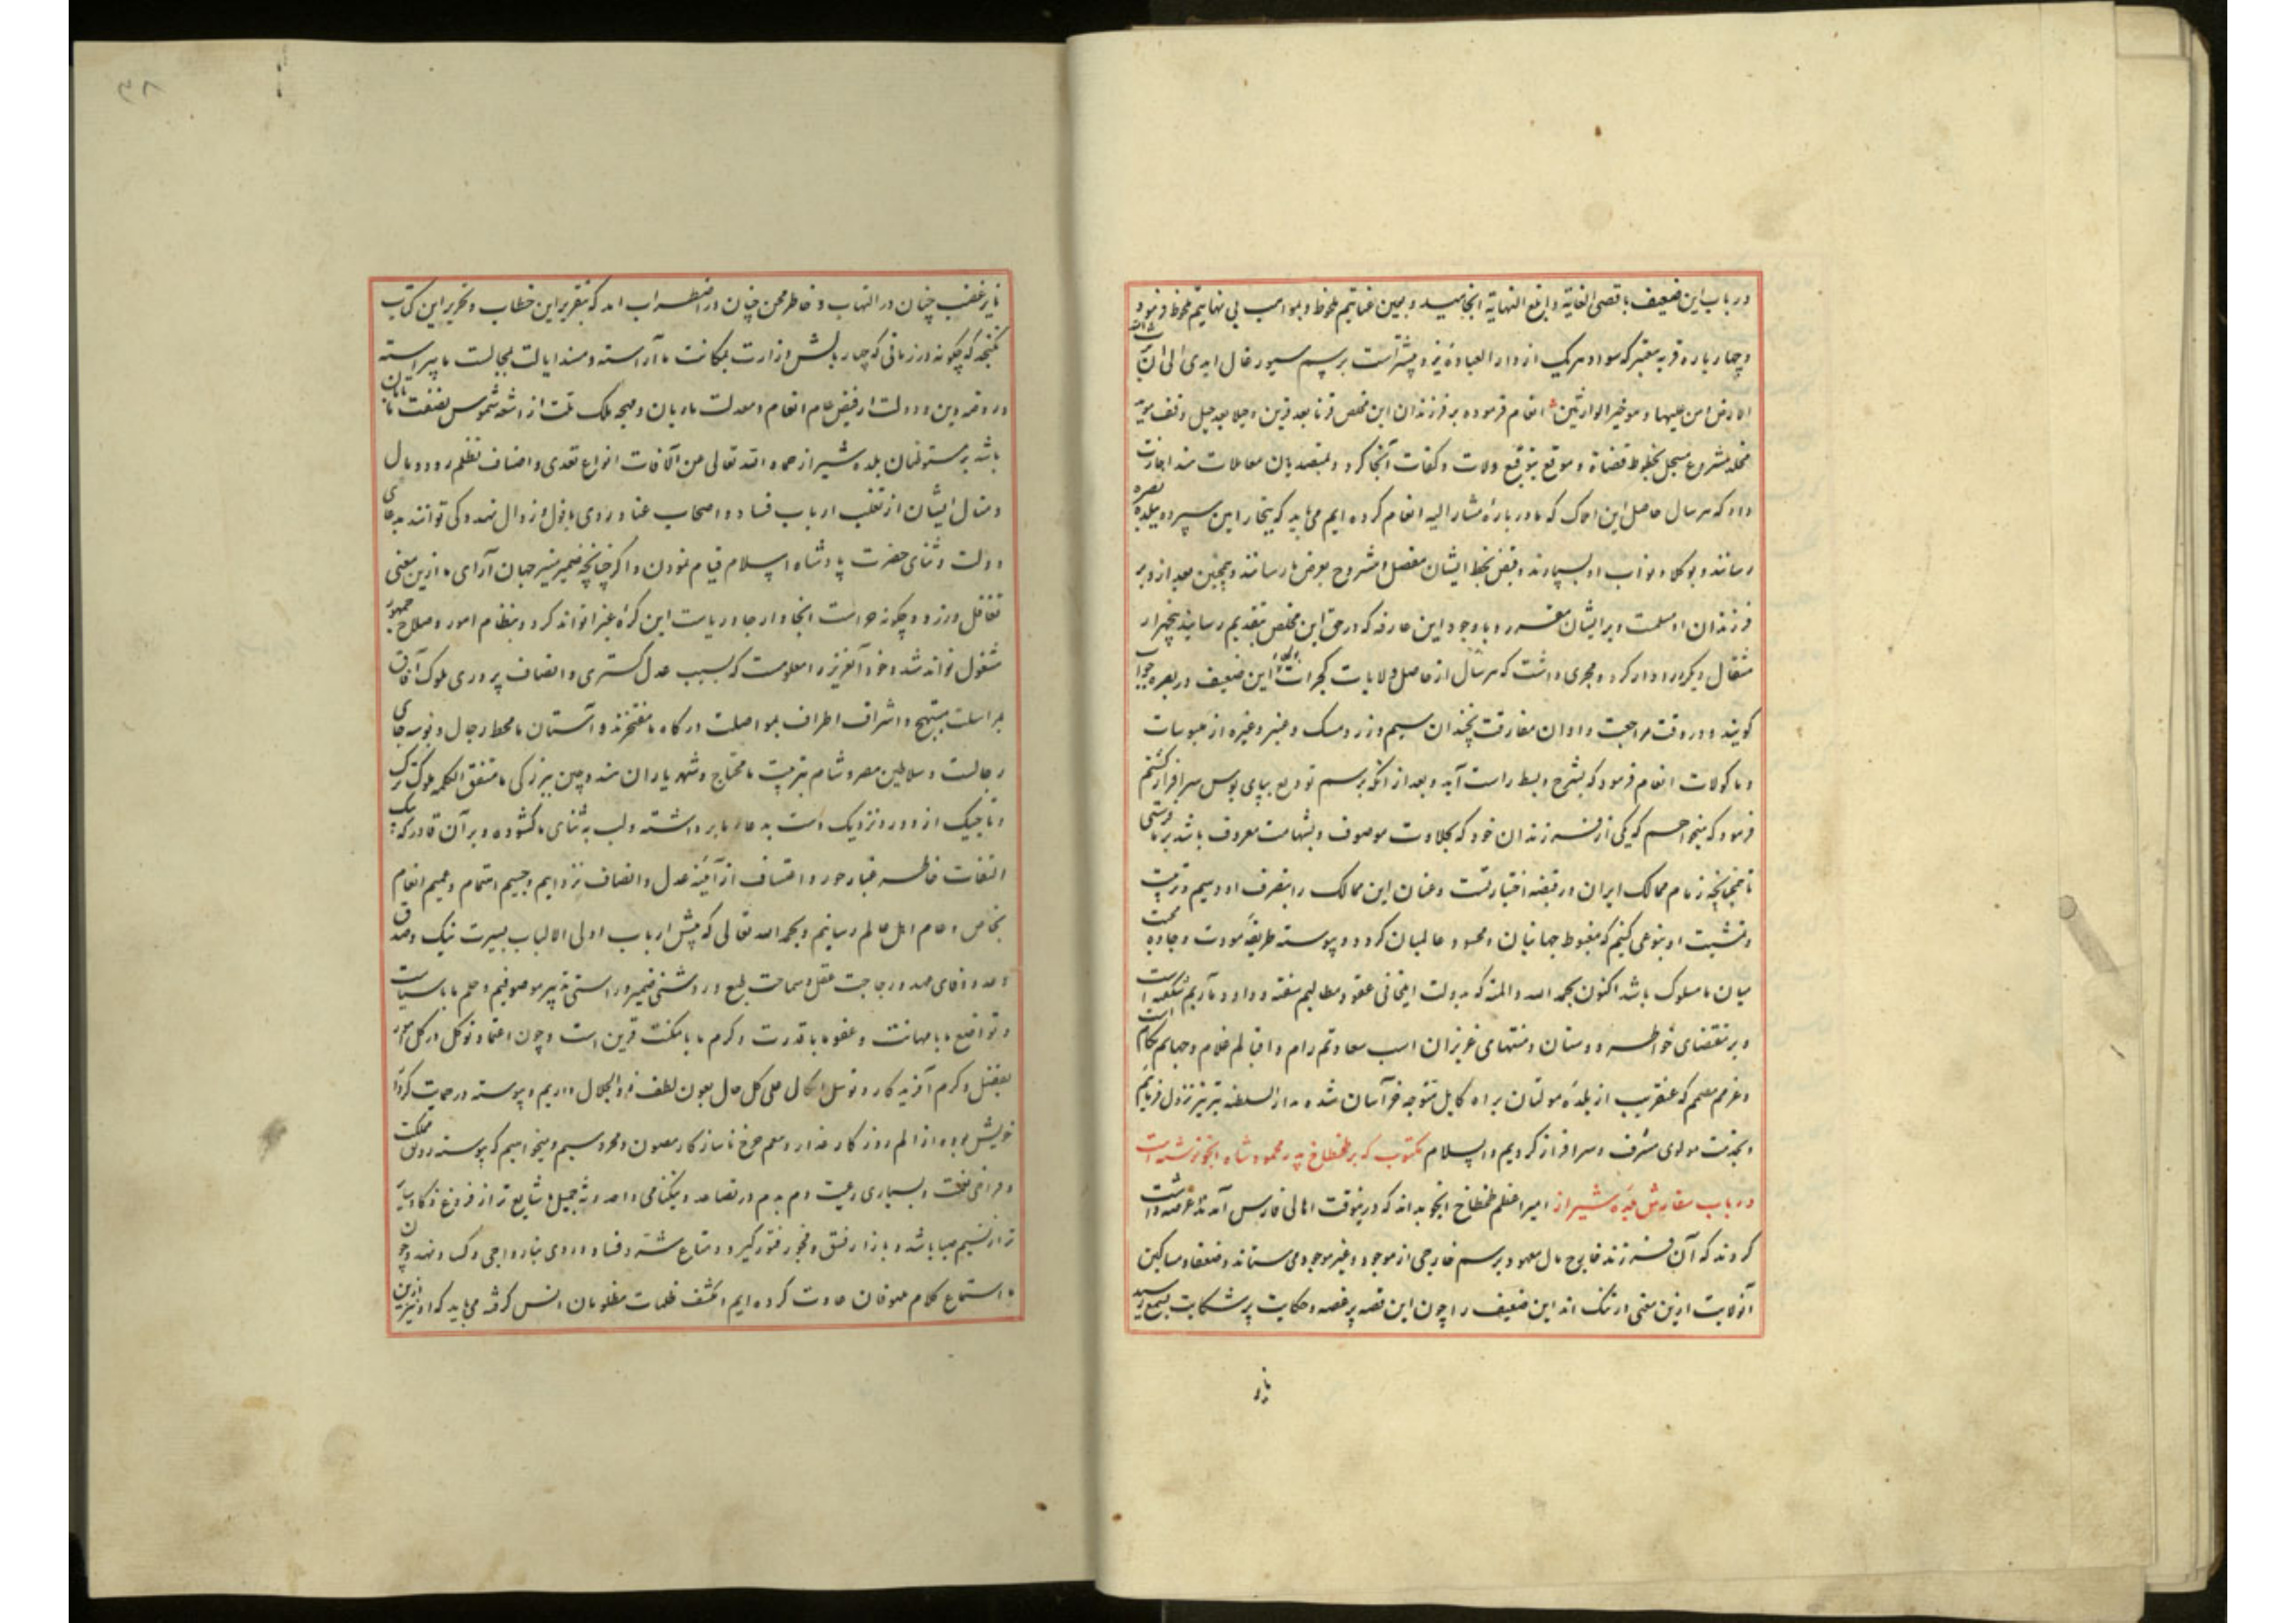 در باب این ضعیف باقصی الغایة و ابلغ النهایة انجامید و بمین عنایتم ملحوظ و بمواهب بی نهایتم محظوظ فرمود
و چهار پاره قریه معتبر که سواد هر یک از دار العباده یزد بیشتر است برسم سیورغال ابدی الی ان یرث الله
الارض و من علیها و هو خیر الوارثین انعام فرموده بر فرزندان این مخلص قرنا بعد قرن و جیلا بعد جیل وقف مؤبد
مخلد مشروع مسجل بخطوط قضاة و موقع بتوقیع ولات و کفات آنجا کرد و بمتصدیان معاملات هند اجازت
داد که هر سال حاصل این املاک که ما در باره مشار الیه انعام کرده ایم می باید که بتجار امین سپرده ببلده بصره
رسانند و بوکلا و نواب او بسپارند و قبض بخط ایشان مفصل مشروح بعرض ما رسانند و همچنین بعد از و بر
فرزندان او مسلمست و بر ایشان مقرر و با وجود این عارفه که در حق این مخلص بتقدیم رسانید پنج هزار
مثقال دیگر ادرار کرد و مجری داشت که هر سال از حاصل ولایات کجرات این ضعیف در بصره جواب
گویند و در وقت مراجعت و اوان مفارقت چندان سیم و زر و مسک و عنبر و غیره از ملبوسات
و ماکولات انعام فرمود که بشرح و بسط راست آید و بعد از آنکه برسم تودیع بپای بوس سرافراز گشتم
فرمود که میخواهیم که یکی از فرزندان خود که بجلادت موصوف و بشهامت معروف باشد بر ما فرستی
تا همچنانچه زمام ممالک ایران در قبضه اختیار تست و عنان این ممالک را بتصرف او دهیم و تربیت
و تمشیت او بنوعی کنیم که مغبوط جهانیان و محسود عالمیان گردد و پیوسته طریقه مودت و جاده محبت
میان ما مسلوک باشد اکنون بحمد الله و المنة که بدولت ایلخانی عقود مطالبم منعقد و داود مآربم منعکف است
و بر مقتضای خواطر دوستان و منتهای عزیزان اسب سعادتم رام و اقبالم غلام و جهانم بکام است
و عزم مصمم که عنقریب از بلده مولتان براه کابل متوجه خراسان شده بدار السلطنه تبریز نزول فرمایم
و بخدمت مولوی مشرف و سرافراز گردیم و السلام مکتوب که بر طخطاخ پدر محمود شاه انجو نوشته است
در باب سفارش بلده شیراز امیر اعظم طخطاخ انجو بداند که درینوقت اهالی فارس آمدند و عرضه داشت
کردند که آن فرزند خارج مال معهود برسم خارجی از موجود و غیر موجود می ستاند و ضعفا و مساکین
آنولایت ازین معنی در تنگ اند این ضعیف را چون این قصه پر غصه و حکایت پر شکایت بسمع رسید
نایر
۳۸
نایر غضب چنان در التهاب و خاطر محن چنان در اضطراب آمد که بتقریر این خطاب و تحریر این کتاب
نگنجد که چگونه در زمانی که چهار بالش وزارت بمکانت ما آراسته و مسند ایالت بجلالت ما پیراسته
و روضه دین و دولت از فیض عام انعام و معدلت ما ریان و مهجه ملک و ملت از اشعه شموس نصفت ما تابان
باشد بر مستوطنان بلده شیراز حماه الله تعالی من الآفات انواع تعدی و اصناف تظلم رود و مال
و منال ایشان از تغلب ارباب فساد و اصحاب عناد روی بافول و زوال نهد و کی توانند بدعای
دولت و ثنای حضرت پادشاه اسلام قیام نمودن و اگر چنانچه ضمیر منیر جهان آرای ما ازین معنی
تغافل ورزد و چگونه حراست انجا و ارجا و ریاست این کره غبرا تواند کرد و بنظام امور و صلاح جمهور
مشغول تواند شد و خود آنعزیز را معلومست که بسبب عدل گستری و انصاف پروری ملوک آفاق
بمراسلت مبتهج و اشراف اطراف بمواصلت درگاه ما مفتخرند و آستان ما محط رجال و بوسه جای
رجالست و سلاطین مصر و شام بتربیت ما محتاج و شهریاران هند و چین ببزرگی ما متفق الکلمه ملوک ترک
و تاجیک از دور و نزدیک دست بدعاء ما برداشته و لب بثنای ما گشوده و بر آن قادر که بیک
التفات خاطر غبار جور و اعتساف از آینه عدل و انصاف بزداییم و جسیم اهتمام و عمیم انعام
بخاص و عام اهل عالم رسانیم و بحمد الله تعالی که پیش ارباب اولی الالباب بسیرت نیک و صدق
وعد و وفای عهد و رجاحت عقل و سماحت طبع و روشنی ضمیر و راستی تدبیر موصوفیم و حلم ما با سیاست
و تواضع ما با مهابت و عفو ما با قدرت و کرم ما با مکنت قرین است و چون اعتماد و توکل در کل امور
بفضل و کرم آفریدکار و توسل و اتکال علی کل حال بعون لطف ذو الجلال داریم و پیوسته در حمایت کردار
خویش بوده از الم روزگار غدار و ستم چرخ ناسازکار مصون و محروسیم و میخواهیم که پیوسته رونق مملکت
و فراخی نعمت و بسیاری رعیت دم بدم در تصاعد و نیکنامی و احدوثه جمیل ما شایع تر از فروغ ذکا و سایر
تر از نسیم صبا باشد و بازار فسق و فجور فتور گیرد و متاع شر و فساد روی بنارواجی و کساد نهد و چون
با استماع کلام ملهوفان عادت کرده ایم و بکشف ظلمات مظلومان انس گرفته می باید که او نیز ازین